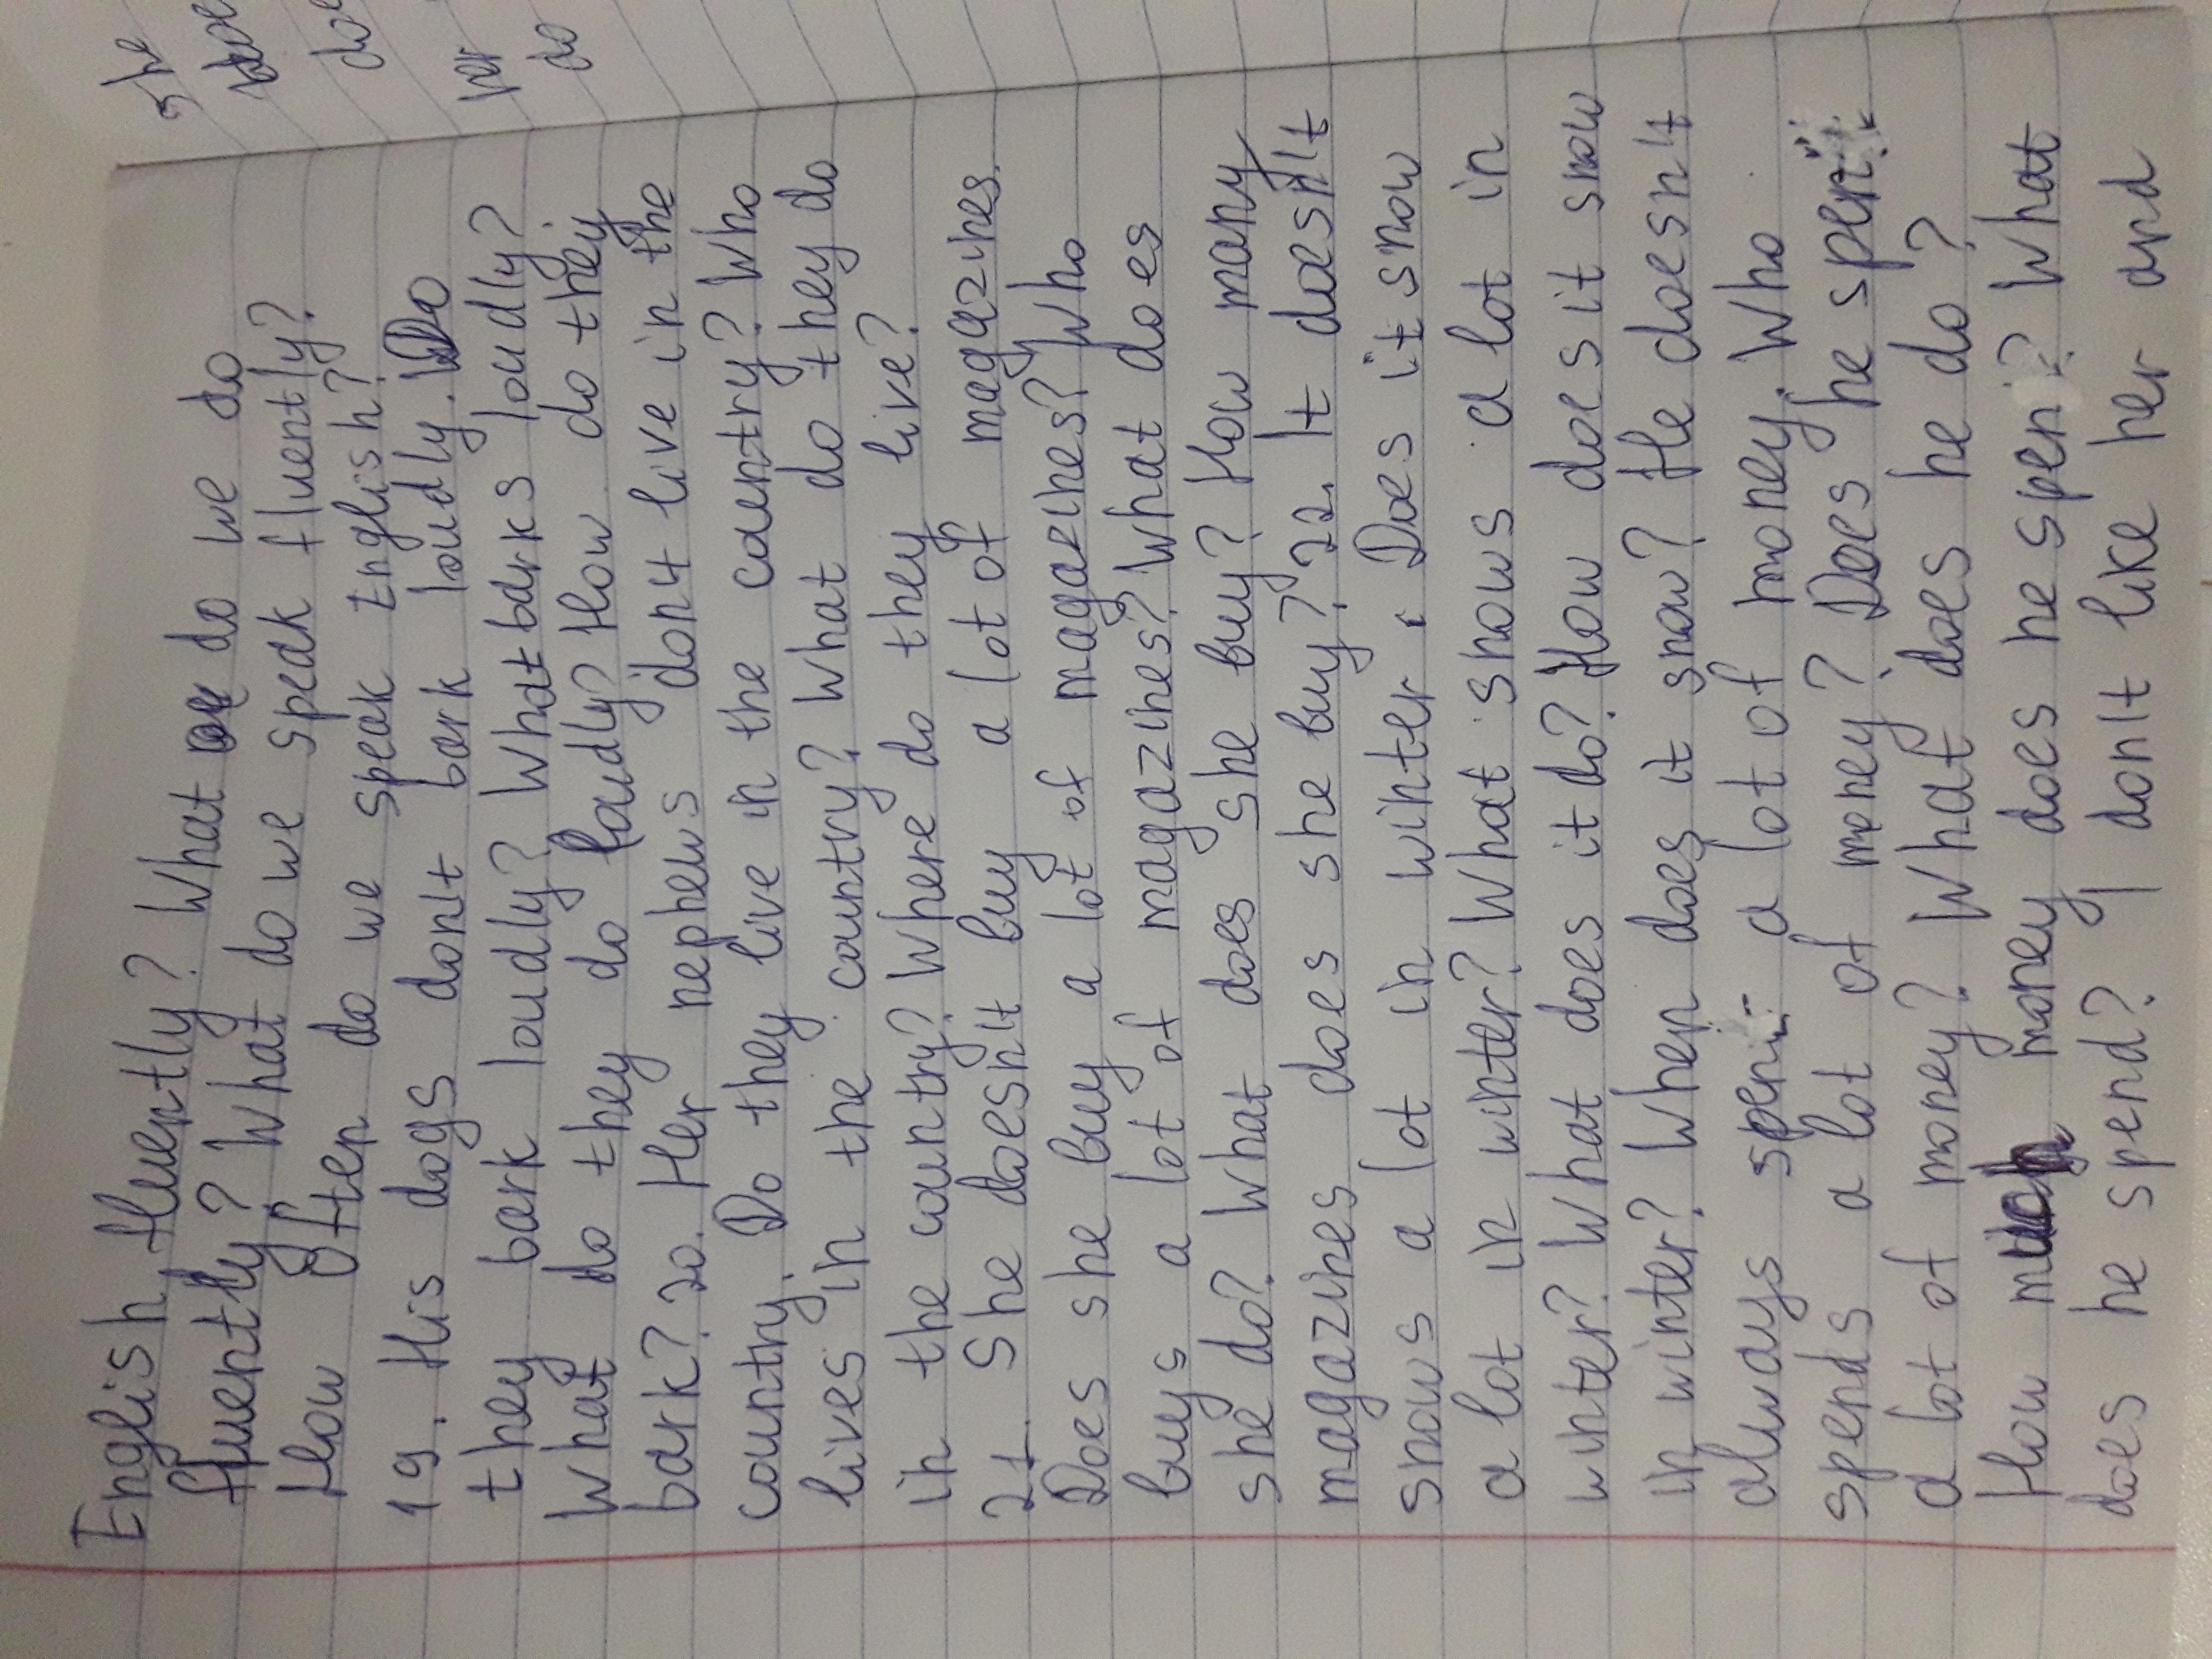 English fluently? What do we do
fluently? What do we speak fluently?
How often do we speak English?
19. His dogs don't bark loudly. Do
they bark loudly? What barks loudly?
What do they do loudly? How do they
bark? 20. Her nephews don't live in the
country. Do they live in the country? Who
lives in the country? What do they do
in the country? Where do they live?
21. She doesn't buy a lot of magazines.
Does she buy a lot of magazines? Who
buys a lot of magazines? What does
she do? What does she buy? How many
magazines does she buy? 22. It doesn't
snows a lot in winter. Does it snow
a lot in winter? What snows a lot in
winter? What does it do? How does it snow
in winter? When does it snow? He doesn't
always spen a lot of money. Who
spends a lot of money? Does he spen
a lot of money? What does he do?
How much money does he spen? What
does he spend? I don't like her and
she
doe
her
do